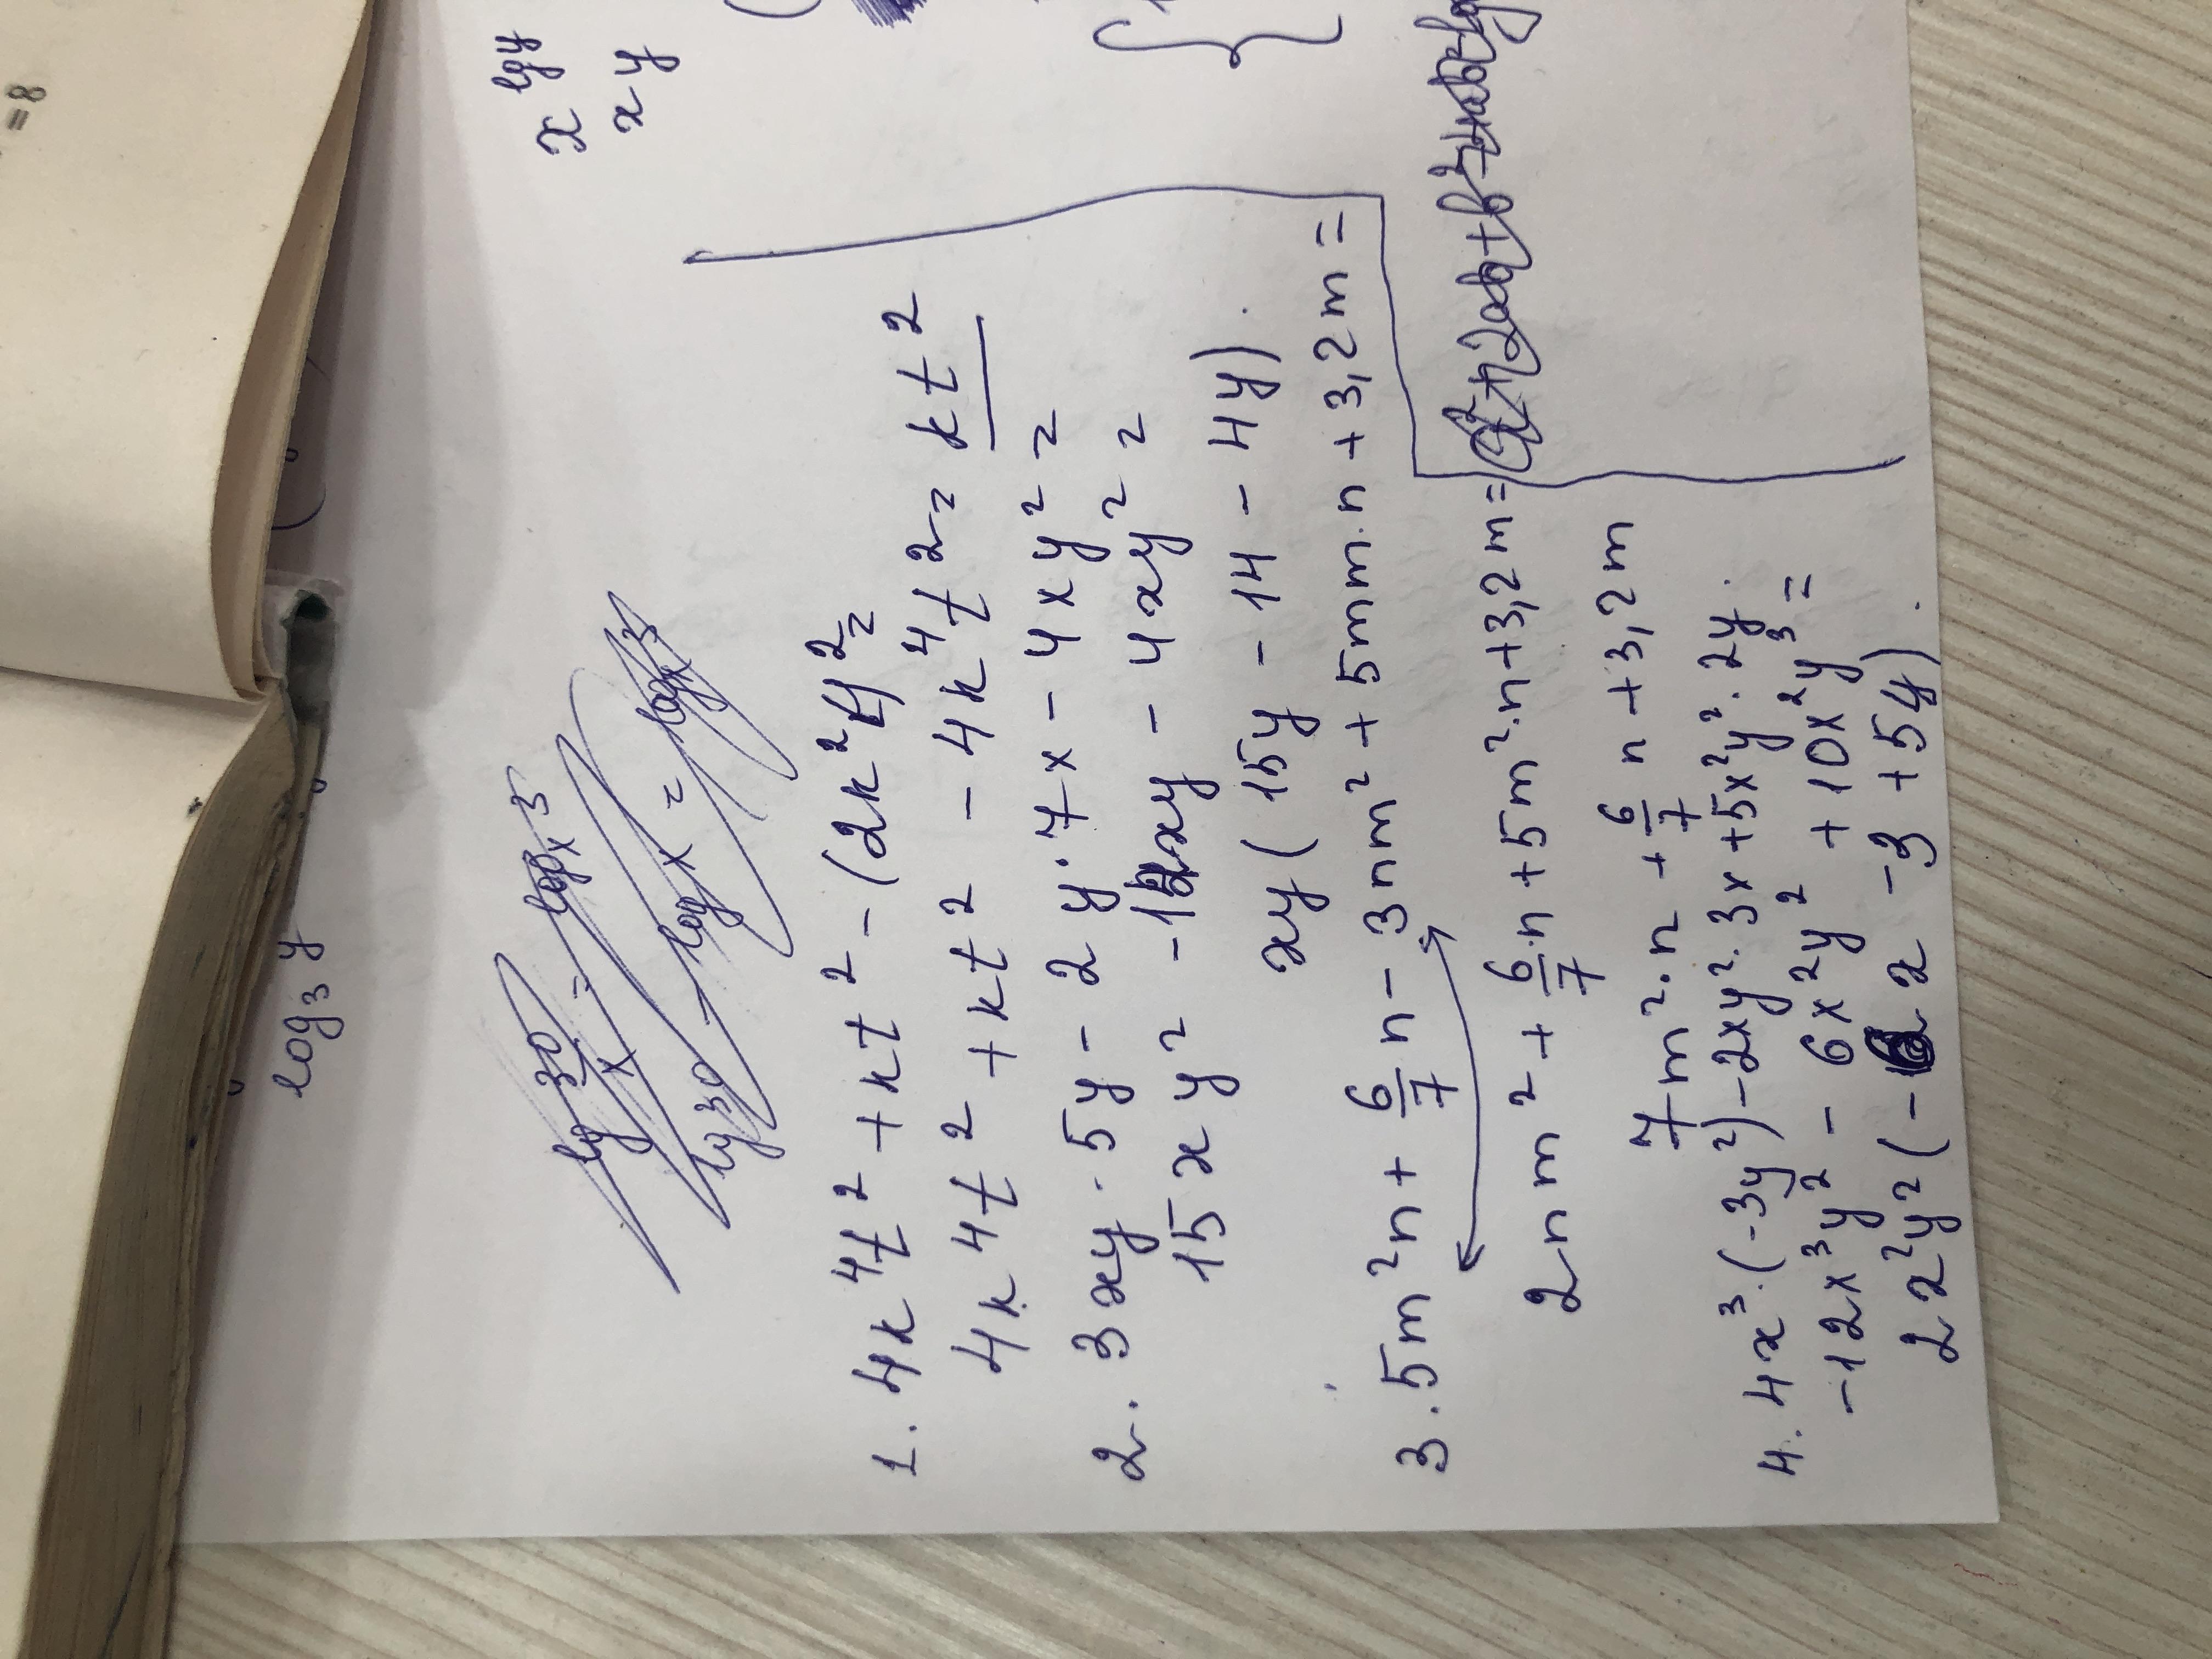 = 8
log₃ y
x^lg y
x y
lg 30 / x = log_x 3
lg 30 - log x = log_x 3
1. 4k⁴t² + kt² - (2k²t)² =
4k⁴t² + kt² - 4k⁴t² = kt²
2. 3xy · 5y - 2y · 7x - 4xy² =
15xy² - 14xy - 4xy² =
xy(15y - 14 - 4y).
3. 5m²n + 6/7 n - 3nm² + 5mm·n + 3,2m =
2nm² + 6/7·n + 5m²·n + 3,2m =
7m²·n + 6/7 n + 3,2m
4. 4x³·(-3y²) - 2xy²·3x + 5x²y²·2y.
-12x³y² - 6x²y² + 10x²y³ =
2x²y²(-6x - 3 + 5y).